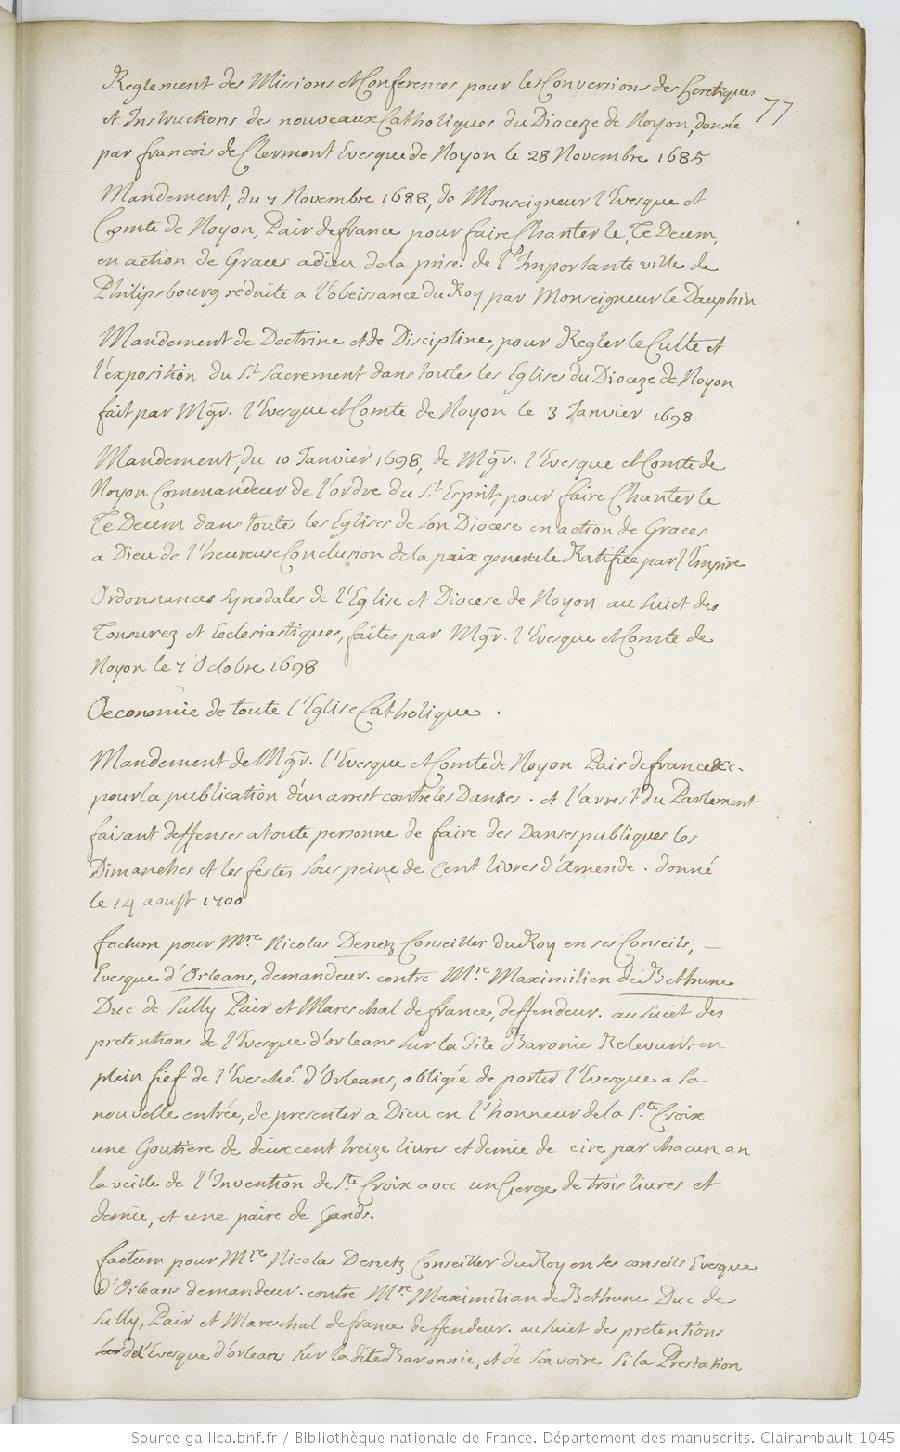 Reglement des Missions et Conferences pour les Conversions des heretiques
77
et Instructions des nouveaux Catholiques du Dioceze de Noyon, donné
par francois de Clermont Evesque de Noyon le 28 Novembre 1685
Mandement, du 7 Novembre 1688, de Monseigneur l'Evesque et
Comte de Noyon, Pair de france pour faire Chanter le, Te Deum,
en action de Graces a dieu de la prise de l'Importante ville de
Philipsbourg reduite a l'obeissance du Roy par Monseigneur le Dauphin
Mandement de Doctrine et de Discipline, pour Regler le Culte et
l'exposition du St. Sacrement dans toutes les Eglises du Dioceze de Noyon
fait par Mgr. l'Evesque et Comte de Noyon le 3 Janvier 1698
Mandement, du 10 Janvier 1698, de Mgr. l'Evesque et Comte de
Noyon Commandeur de l'ordre du St. Esprit, pour faire Chanter le
Te Deum dans toutes les Eglises de son Diocese en action de Graces
a Dieu de l'heureuse Conclusion de la paix generale Ratifiée par l'Empire
Ordonnances synodales de l'Eglise et Diocese de Noyon au sujet des
Tonsurez et Ecclesiastiques, faites par Mgr. l'Evesque et Comte de
Noyon le 7 Octobre 1698
Oeconomie de toute l'Eglise Catholique .
Mandement de Mgr. l'Evesque et Comte de Noyon Pair de france &c.
pour la publication d'un arrest contre les Danses. et l'arrest du Parlement
faisant deffenses a toute personne de faire des Danses publiques les
Dimanches et les festes sous peine de Cent livres d'Amende. donné
le 14 aoust 1700
factum pour Mre. Nicolas Denetz Conseiller du Roy en ses Conseils, —
Evesque d'Orleans, demandeur. contre Mre. Maximilien de Bethune
Duc de Sully Pair et Mareschal de france, deffendeur. au sujet des
pretentions de l'Evesque d'orleans sur la dite Baronie Relevant en
plein fief de l'Evesché d'Orleans, obligée de porter l'Evesque a sa
nouvelle entrée, de presenter a Dieu en l'honneur de la Ste. Croix
une Goutiere de deux cent treize livres et demie de cire par chacun an
la veille de l'Invention de Ste. Croix avec un Cierge de trois livres et
demie, et une paire de Gands.
factum pour Mre. Nicolas Denetz Conseiller du Roy en ses conseils Evesque
d'Orleans demandeur. contre Mre. Maximilian de Bethune Duc de
Sully, Pair et Mareschal de france deffendeur. au sujet des pretentions
de l'Evesque d'orleans sur la dite Baronnie, et de scavoire si la Prestation
Source gallica.bnf.fr / Bibliothèque nationale de France. Département des manuscrits. Clairambault 1045